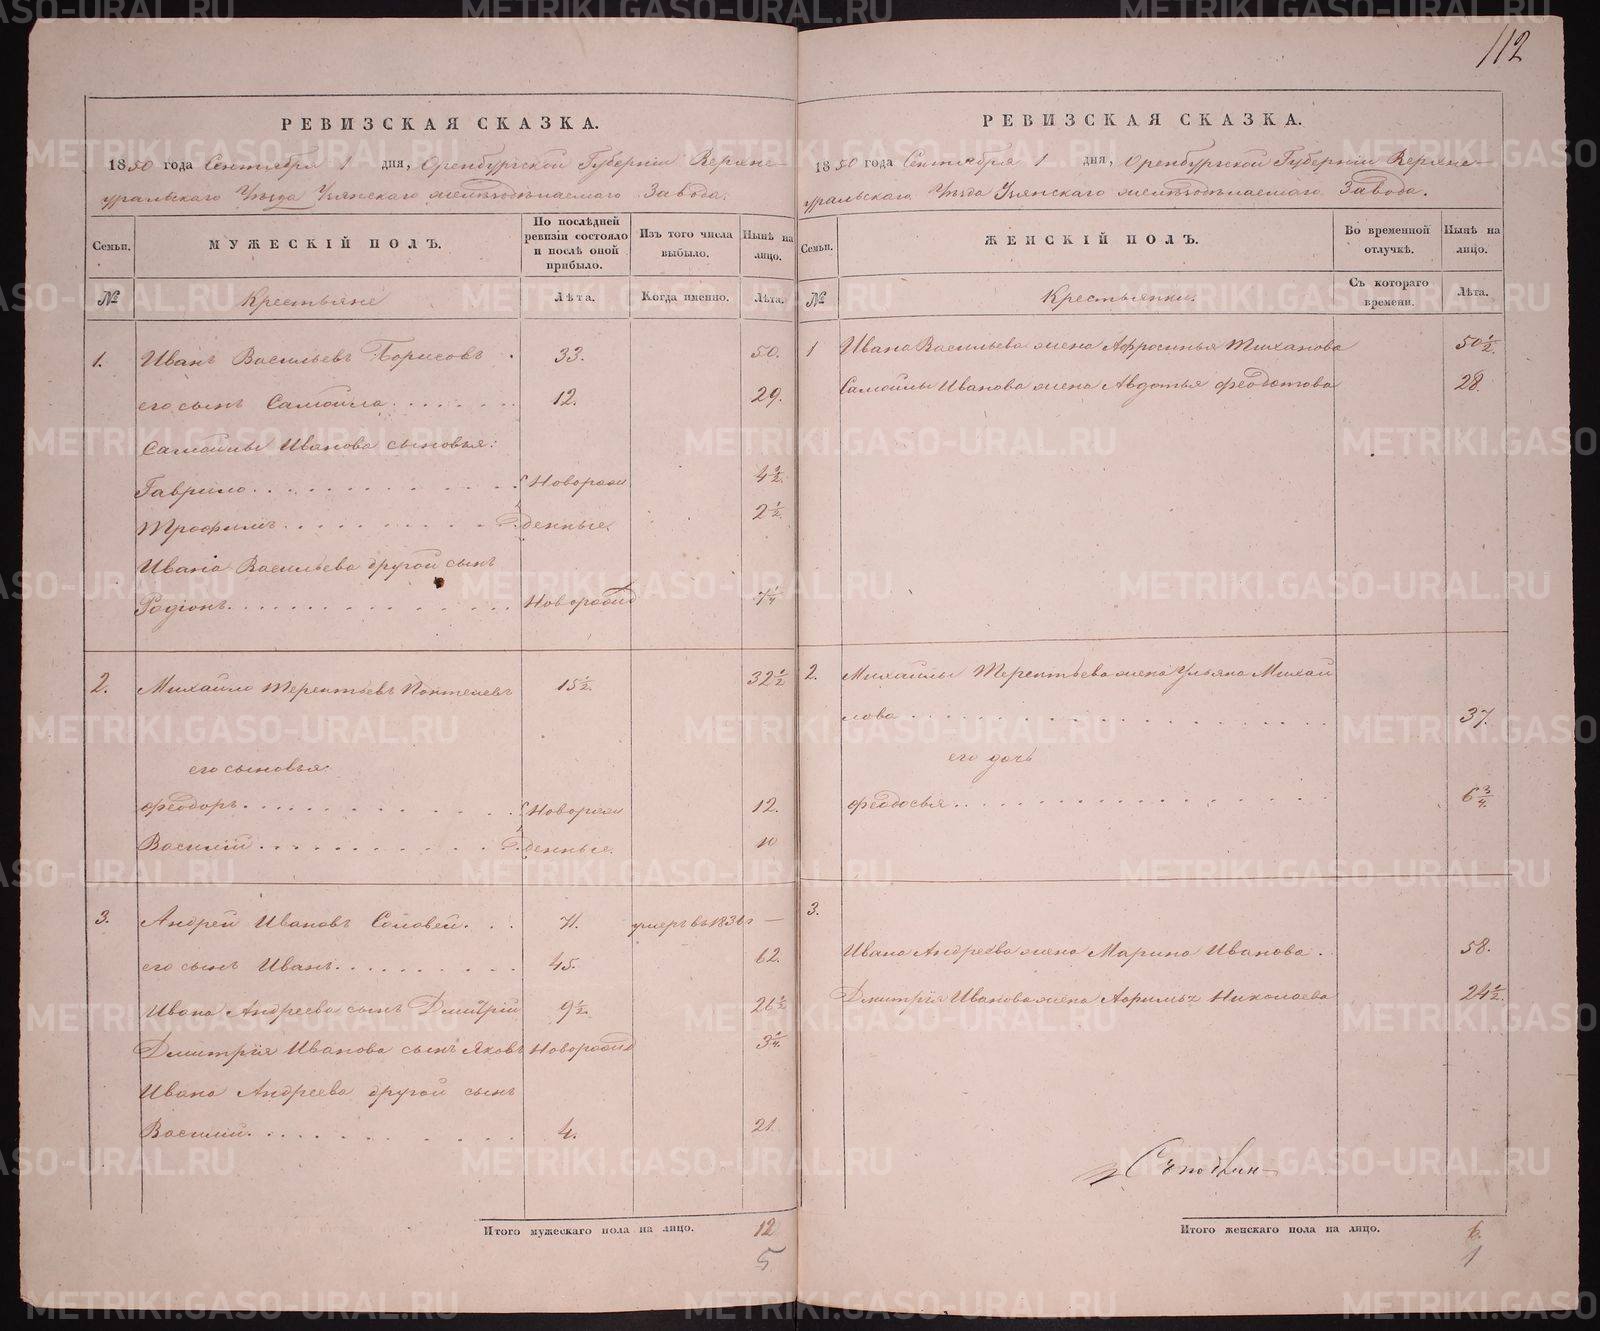 112
РЕВИЗСКАЯ СКАЗКА.
1850 года Сентября 1 дня, Оренбургской Губернiи Верхне-
уральскаго Уѣзда Узянскаго желѣзодѣлаемаго Завода.
Семьи. МУЖЕСКIЙ ПОЛЪ. По послѣдней ревизiи состояло и послѣ оной прибыло. Изъ того числа выбыло. Нынѣ на лицо.
№ Крестьяне Лѣта. Когда именно. Лѣта.
1. Иванъ Васильевъ Борисовъ. 33. 50.
его сынъ Самойла 12. 29.
Самойлы Иванова сыновья:
Гаврило Новорож 4 1/2
Трофимъ денные. 2 1/2
Ивана Васильева другой сынъ
Родiонъ. Новорожд 7 1/4
2. Михайло Терентьевъ 15 1/2 32 1/2
его сыновья:
Феодоръ Новорож 12.
Василiй денные. 10
3. Андрей Ивановъ Соловей. 71. умеръ въ —
его сынъ Иванъ 45. 62.
Ивана Андреева сынъ Дмитрiй 9 1/2 26 1/2
Дмитрiя Иванова сынъ Яковъ Новорожд 3 1/4
Ивана Андреева другой сынъ
Василiй. 4. 21.
Итого мужескаго пола на лицо. 12
5
РЕВИЗСКАЯ СКАЗКА.
1850 года Сентября 1 дня, Оренбургской Губернiи Верхне-
уральскаго Уѣзда Узянскаго желѣзодѣлаемаго Завода.
Семьи. ЖЕНСКIЙ ПОЛЪ. Во временной отлучкѣ. Нынѣ на лицо.
№ Крестьянки. Съ котораго времени. Лѣта.
1 Ивана Васильева жена Афросинья Тиханова 50 1/2
Самойлы Иванова жена Авдотья Феодотова 28.
2. Михайлы Терентьева жена Ульяна Михай
лова 37.
его дочь
Феодосья 6 3/4
3.
Ивана Андреева жена Марина Иванова. 58.
Дмитрiя Иванова жена Николаева 24 1/2
Итого женскаго пола на лицо. 6.
1